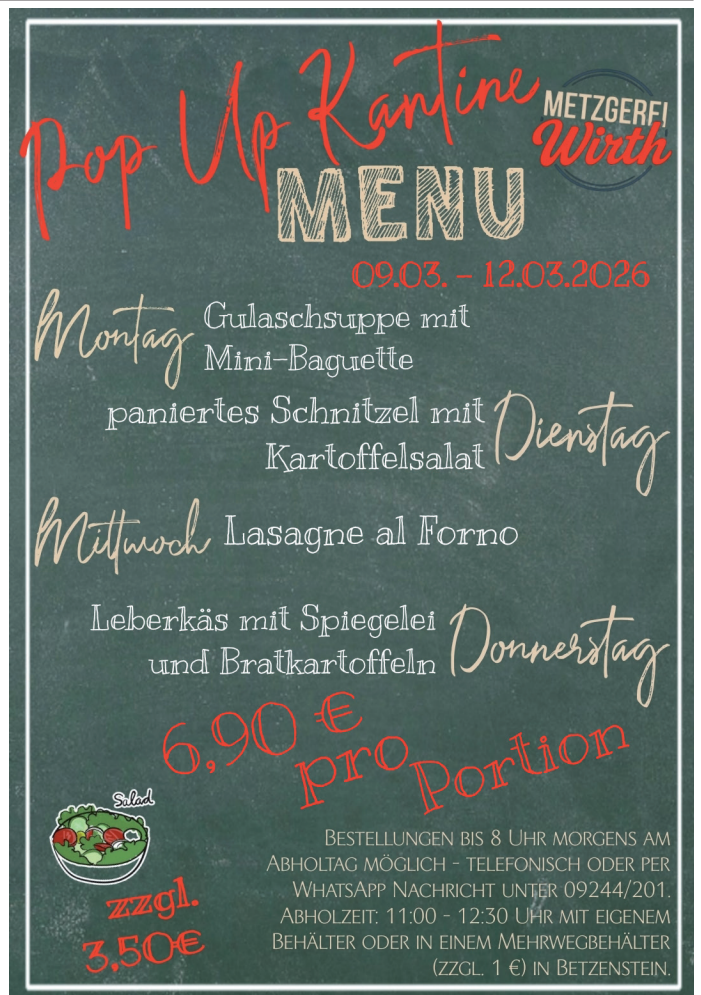 Pop Up Kantine
METZGEREI
Wirth
MENU
09.03. – 12.03.2026
Montag
Gulaschsuppe mit
Mini-Baguette
paniertes Schnitzel mit
Kartoffelsalat
Dienstag
Mittwoch
Lasagne al Forno
Leberkäs mit Spiegelei
und Bratkartoffeln
Donnerstag
6,90 €
pro
Portion
Salad
zzgl.
3,50€
Bestellungen bis 8 Uhr morgens am
Abholtag möglich - telefonisch oder per
WhatsApp Nachricht unter 09244/201.
Abholzeit: 11:00 - 12:30 Uhr mit eigenem
Behälter oder in einem Mehrwegbehälter
(zzgl. 1 €) in Betzenstein.